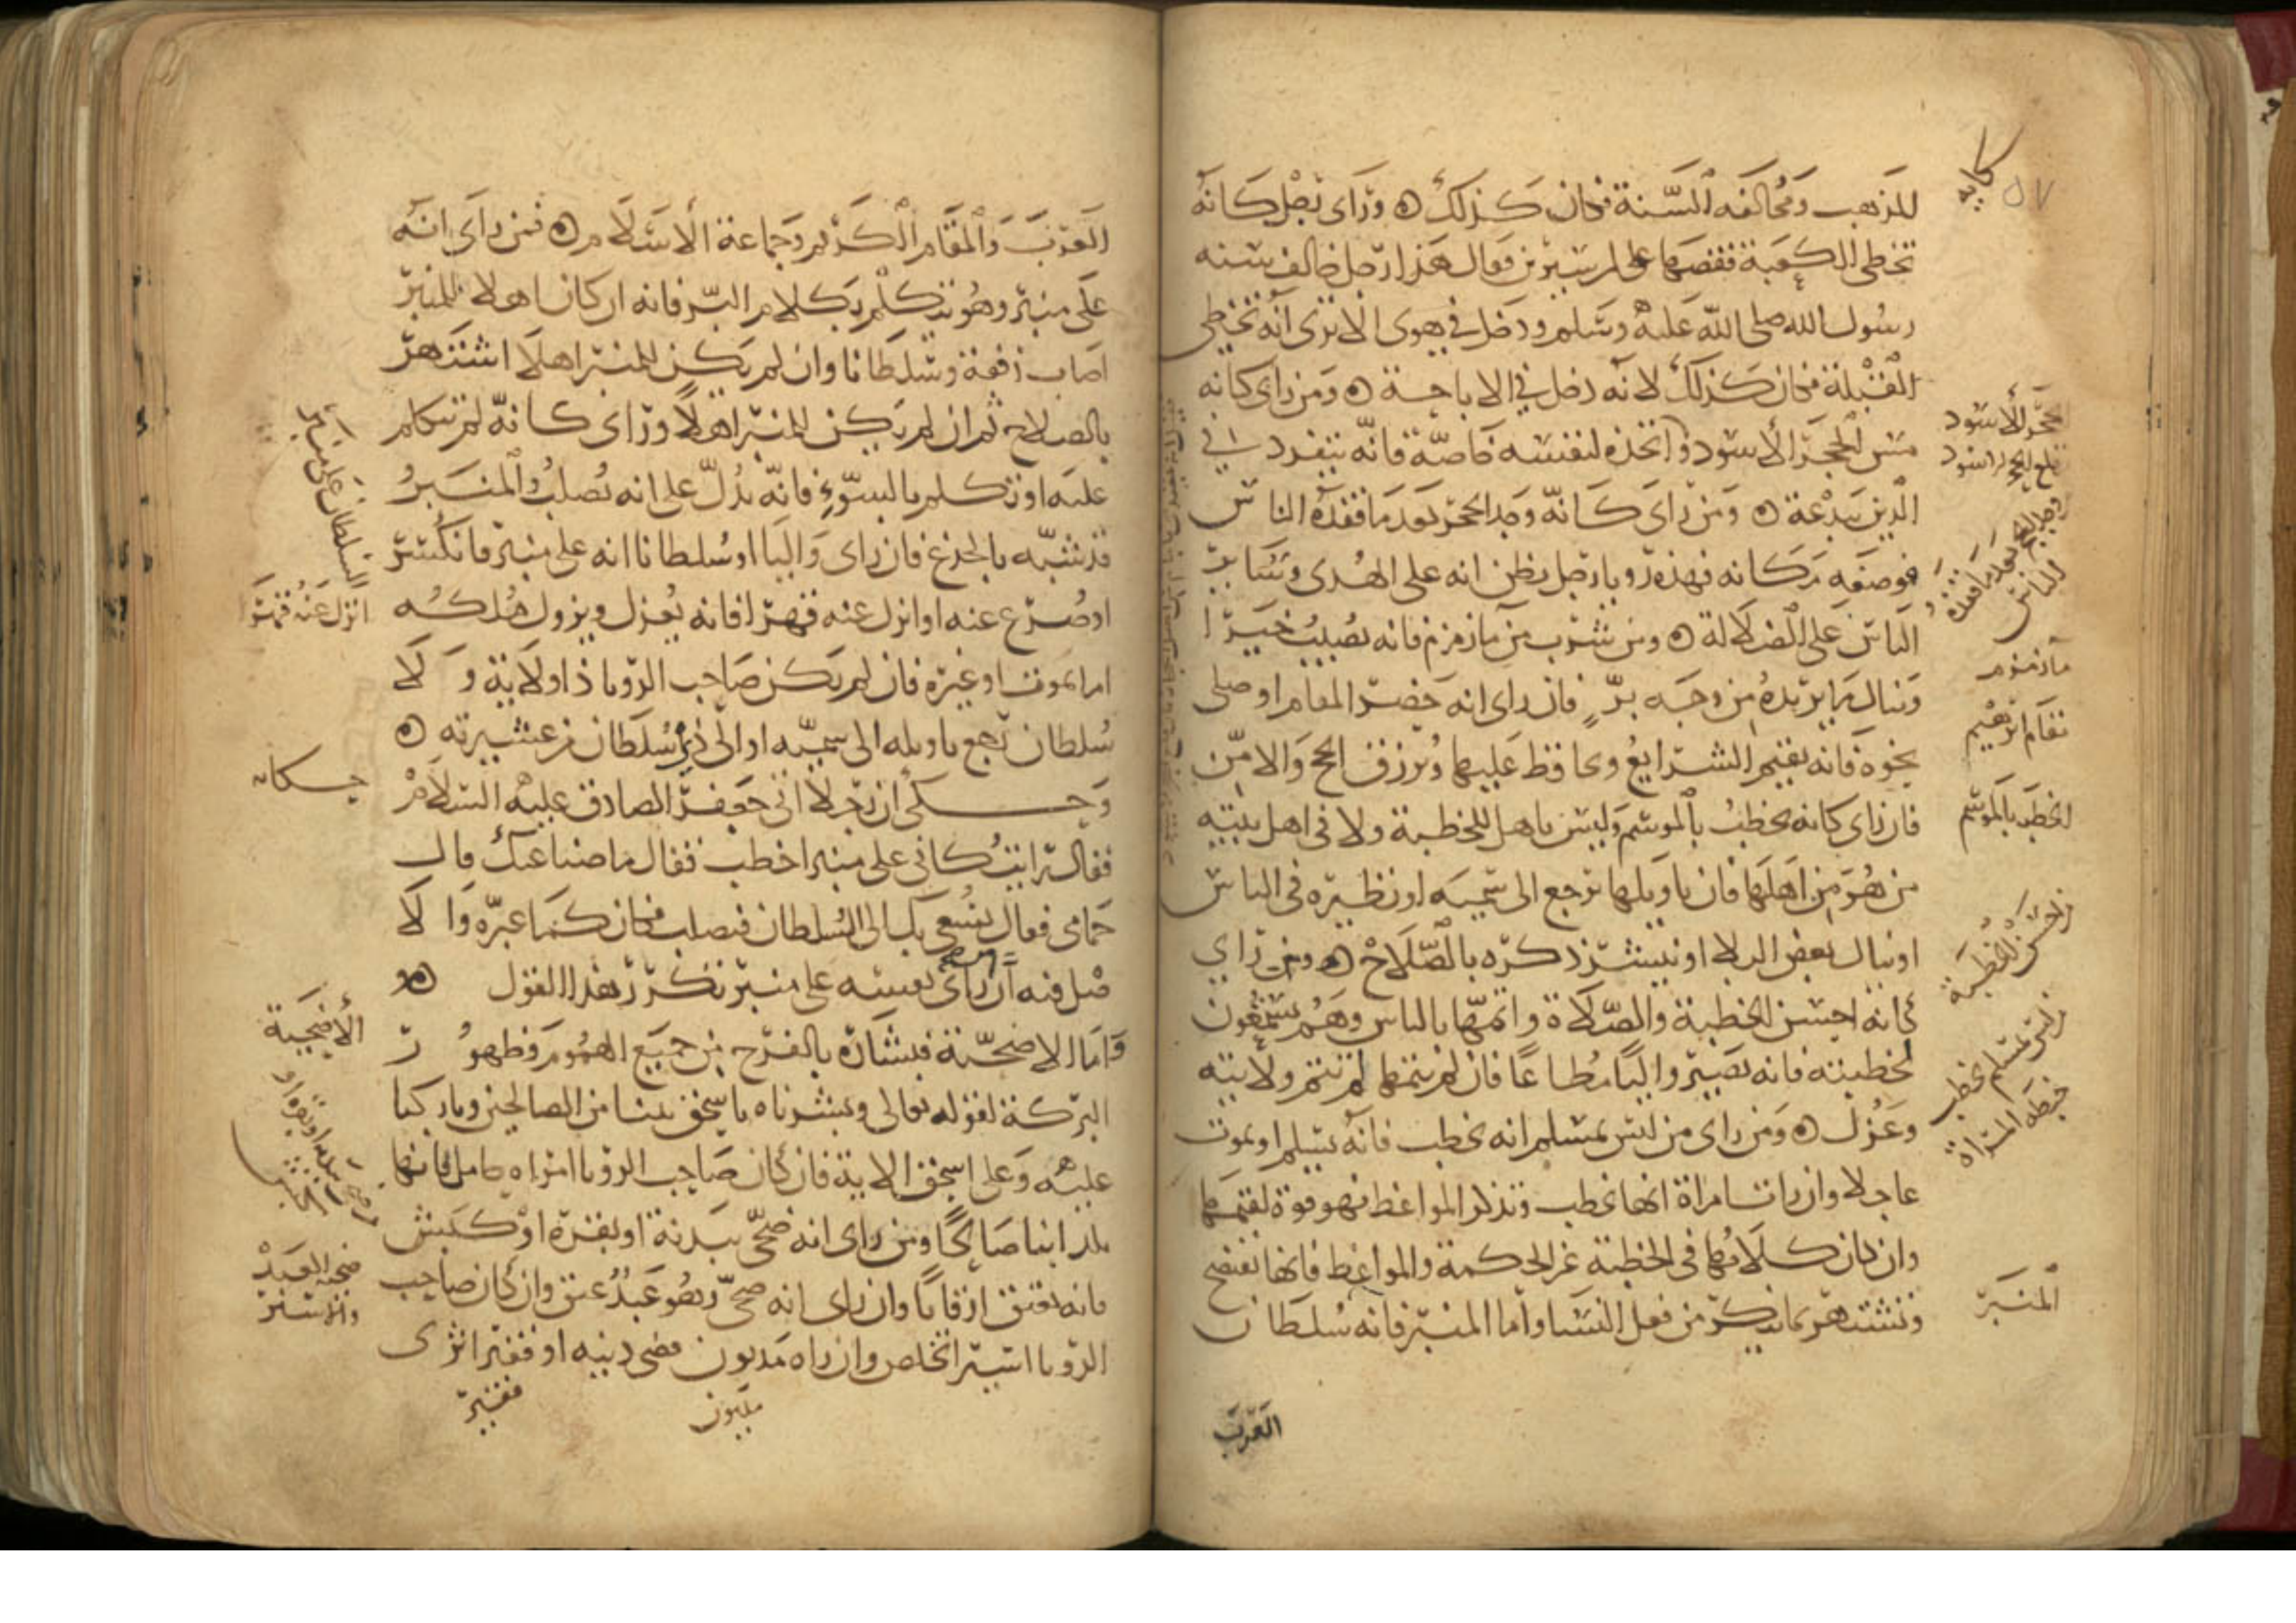 للمذهب ومخالفه السنة فكان كذلك ورأى رجل كانه
تخطى الكعبة فقصها على ابن سيرين فقال هذا رجل خالف سنة
رسول الله صلى الله عليه وسلم ودخل في هوى الا ترى انه تخطى
القبلة فكان كذلك لانه دخل في الاباحة ومن راى كانه
مس الحجر الاسود واتخذه لنفسه خاصة فانه ينفرد في
الدين ببدعة ومن راى كانه وجد الحجر بعد ما فقده الناس
فوضعه مكانه فهذه رويا رجل يظن انه على الهدى وسائر
الناس على الضلالة ومن شرب من ماء زمزم فانه يصيب خيرا
وينال ما يريده من وجه بر فان راى انه حضر المقام او صلى
نحوه فانه يقيم الشرايع ويحافظ عليها ويرزق الحج والامن
فان راى كانه يخطب بالموسم وليس باهل للخطبة ولا في اهل بيته
من هو من اهلها فان تاويلها ترجع الى سميه او نظيره في الناس
او ينال بعض البلا او ينتشر ذكره بالصلاح ومن راى
كانه احسن الخطبة والصلاة واتمها بالناس وهم يستمعون
لخطبته فانه يصير واليا مطاعا فان لم يتمها لم تتم ولايته
وعزل ومن راى من ليس بمسلم انه يخطب فانه يسلم او يموت
عاجلا وان رات امراة انها تخطب وتذكر المواعظ فهو قوة لقيمها
وان كان كلامها في الخطبة غير الحكمة والمواعظ فانها تفتضح
وتشتهر بما ينكر من فعل النسا واما المنبر فانه سلطان
العرب
حكايه
٥٧
الحجر الاسود
قلع الحجر الاسود
وجد الحجر بعد ما فقده
الناس
ماء زمزم
مقام ابرهيم
الخطبة بالموسم
من احسن الخطبة
من ليس بمسلم يخطب
خطبة المراة
المنبر
العرب والمقام الكريم وجماعة الاسلام فمن راى انه
على منبر وهو يتكلم بكلام البر فانه ان كان اهلا للمنبر
اصاب رفعة وسلطانا وان لم يكن للمنبر اهلا اشتهر
بالصلاح ثم ان لم يكن للمنبر اهلا ورأى كانه لم يتكلم
عليه او تكلم بالسوء فانه يدل على انه يصلب والمنبر
قد شبه بالجذع فان راى واليا او سلطانا انه على منبر فانكسر
او صرع عنه او انزل عنه قهرا فانه يعزل ويزول ملكه
اما بموت او غيره فان لم يكن صاحب الرويا ذا ولاية ولا
سلطان رجع تاويله الى سميه او الى ذي سلطان من عشيرته
وحكى ان رجلا اتى جعفر الصادق عليه السلام
فقال رايت كاني على منبر اخطب فقال ما صناعتك قال
حمامى فقال يسعى بك الى السلطان فتصلب فكان كما عبره والا
قيل فيه ان راى نفسه على منبر تكرر هذا القول
واما الاضحية فبشارة بالفرح من جميع الهموم وظهور
البركة لقوله تعالى وبشرناه باسحق نبيا من الصالحين وباركنا
عليه وعلى اسحق الاية فان كان صاحب الرويا امراه حامل فانها
تلد ابنا صالحا ومن راى انه ضحى ببدنة او بقرة او كبش
فانه يعتق ارقابا وان راى انه ضحى وهو عبد عتق وان كان صاحب
الرويا اسيرا تخلص وان راه مديون قضى دينه او فقير اثرى
السلطان على منبر
انزل عنه قهرا
حكايه
الأضحية
ضحى ببدنة او بقرة او
كبش
ضحية العبد
والاسير
مديون
فقير